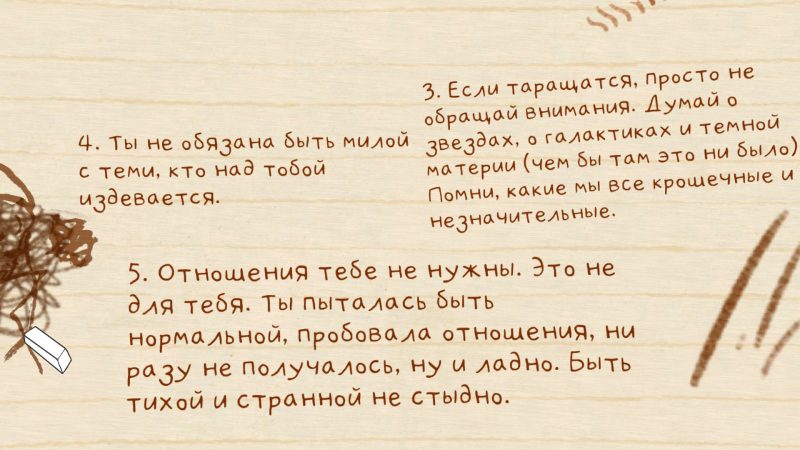 3. Если таращатся, просто не
обращай внимания. Думай о
звездах, о галактиках и темной
материи (чем бы там это ни было)
Помни, какие мы все крошечные и
незначительные.
4. Ты не обязана быть милой
с теми, кто над тобой
издевается.
5. Отношения тебе не нужны. Это не
для тебя. Ты пыталась быть
нормальной, пробовала отношения, ни
разу не получалось, ну и ладно. Быть
тихой и странной не стыдно.